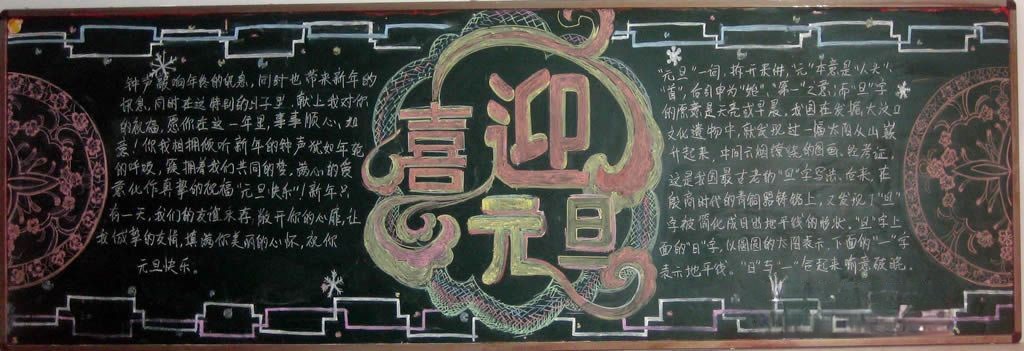 钟声敲响年终的讯息，同时也带来新年的
讯息，同时在这特别的日子里，献上我对你
的祝福，愿你在这一年里，事事顺心，如
意！你我相拥倾听新年的钟声犹如年轮
的呼吸，簇拥着我们共同的梦，满心的爱
意化作真挚的祝福"元旦快乐"！新年只
有一天，我们的友谊永存，敞开你的心扉，让
我诚挚的友情，填满你美丽的心怀，祝你
元旦快乐。
喜迎
元旦
"元旦"一词，拆开来讲，"元"本意是"人头"、
"首"，后引申为"始"、"第一"之意；而"旦"字
的原意是天亮或早晨。我国在发掘大汶口
文化遗物中，就发现过一幅太阳从山巅
升起来，中间云烟缭绕的图画。经考证，
这是我国最古老的"旦"字写法。后来，在
殷商时代的青铜器铸铭上，又发现了"旦"
字被简化成日出地平线的形状。"旦"字上
面的"日"字，以圆圆的太阳表示，下面的"一"字
表示地平线。"日"与"一"合起来寓意破晓。